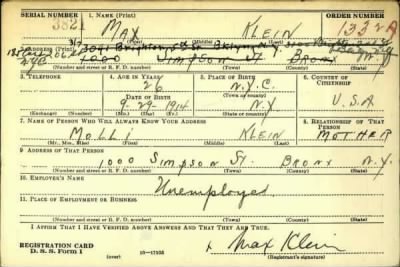 SERIAL NUMBER 1. NAME (Print) ORDER NUMBER
3821 MAX KLEIN 1332A
(First) (Middle) (Last)
3041 Brighton St Bklyn N.Y.
N.Y.C 1000 SIMPSON ST BRONX N.Y.
(Number and street or R. F. D. number) (Town) (County) (State)
3. TELEPHONE 4. AGE IN YEARS 5. PLACE OF BIRTH 6. COUNTRY OF CITIZENSHIP
26 N.Y.C.
(Town or county)
DATE OF BIRTH
9-29-1914 N.Y. U.S.A
(Exchange) (Number) (Mo.) (Day) (Yr.) (State or country)
7. NAME OF PERSON WHO WILL ALWAYS KNOW YOUR ADDRESS 8. RELATIONSHIP OF THAT PERSON
MOLLI KLEIN MOTHER
(Mr., Mrs., Miss) (First) (Middle) (Last)
9. ADDRESS OF THAT PERSON
1000 SIMPSON ST. BRONX N.Y.
(Number and street or R. F. D. number) (Town) (County) (State)
10. EMPLOYER'S NAME
Unemployed
11. PLACE OF EMPLOYMENT OR BUSINESS
(Number and street or R. F. D. number) (Town) (County) (State)
I AFFIRM THAT I HAVE VERIFIED ABOVE ANSWERS AND THAT THEY ARE TRUE.
REGISTRATION CARD
D. S. S. Form 1 16-17105 Max Klein
(Registrant's signature)